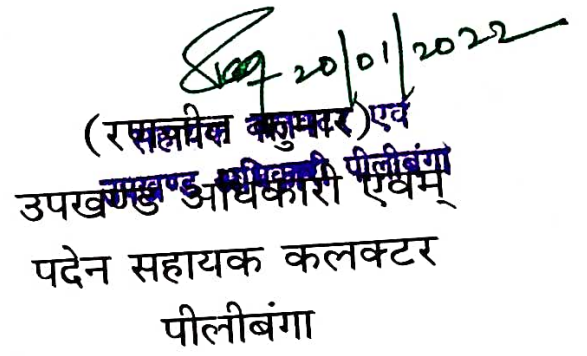 20/01/2022
(रणजीत कुमार) एवं
उपखण्ड अधिकारी पीलीबंगा
उपखण्ड अधिकारी एवम्
पदेन सहायक कलक्टर
पीलीबंगा